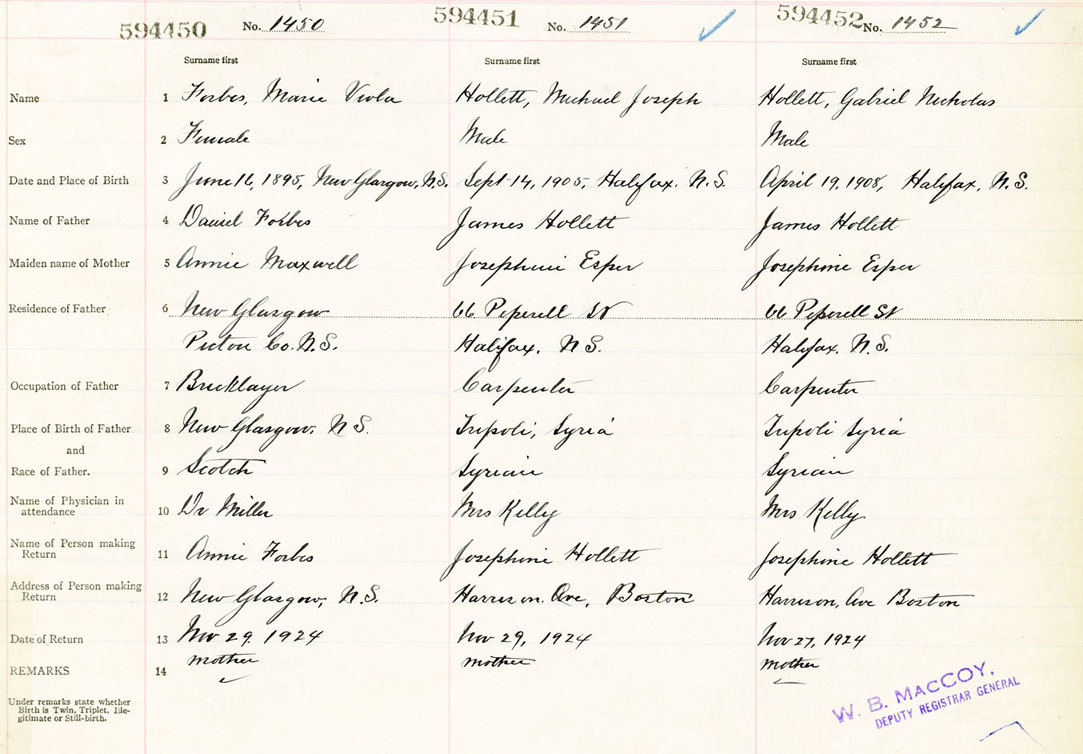 594450 No. 1450 594451 No. 1451 594452 No. 1452
Surname first Surname first Surname first
Name 1 Forbes, Marie Viola Hollett, Michael Joseph Hollett, Gabriel Nicholas
Sex 2 Female Male Male
Date and Place of Birth 3 June 16, 1895, New Glasgow, N.S. Sept 14, 1905, Halifax. N.S. April 19, 1908, Halifax, N.S.
Name of Father 4 Daniel Forbes James Hollett James Hollett
Maiden name of Mother 5 Annie Maxwell Josephine Esper Josephine Esper
Residence of Father 6 New Glasgow 66 Peperell St 66 Peperell St
Pictou Co. N.S. Halifax. N S. Halifax. N.S.
Occupation of Father 7 Bricklayer Carpenter Carpenter
Place of Birth of Father 8 New Glasgow, N S. Tripoli, Syria Tripoli Syria
and
Race of Father. 9 Scotch Syrian Syrian
Name of Physician in
attendance 10 Dr Miller Mrs Kelly Mrs Kelly
Name of Person making
Return 11 Annie Forbes Josephine Hollett Josephine Hollett
Address of Person making
Return 12 New Glasgow, N.S. Harrison. Ave, Boston Harrison, Ave Boston
Date of Return 13 Nov 29, 1924 Nov 29, 1924 Nov 27, 1924
REMARKS 14 mother mother mother
Under remarks state whether
Birth is Twin, Triplet, Ille-
gitimate or Still-birth.
W. B. MACCOY,
DEPUTY REGISTRAR GENERAL